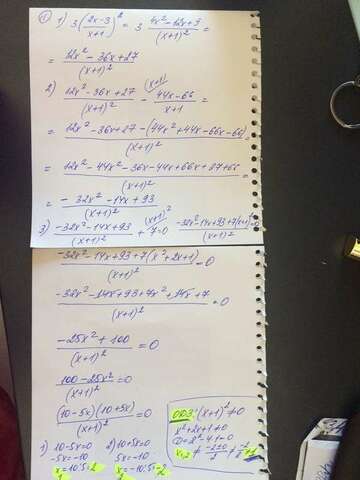 ① 1) 3(2x-3/x+1)² = 3 4x²-12x+9/(x+1)² =
= 12x²-36x+27/(x+1)²
2) 12x²-36x+27/(x+1)² - 44x-66/x+1 (x+1) =
= 12x²-36x+27-(44x²+44x-66x-66)/(x+1)² =
= 12x²-44x²-36x-44x+66x+27+66/(x+1)² =
= -32x²-14x+93/(x+1)²
3) -32x²-14x+93/(x+1)² + 7=0 (x+1)² -32x²-14x+93+7(x+1)²/(x+1)² = 0
-32x²-14x+93+7(x²+2x+1)/(x+1)² = 0
-32x²-14x+93+7x²+14x+7/(x+1)² = 0
-25x²+100/(x+1)² = 0
100-25x²/(x+1)² = 0
(10-5x)(10+5x)/(x+1)² = 0
1) 10-5x=0 2) 10+5x=0
-5x=-10 5x=-10
x=10:5=2 x=-10:5=-2
ОДЗ: (x+1)²≠0
x²+2x+1≠0
D=2²-4·1=0